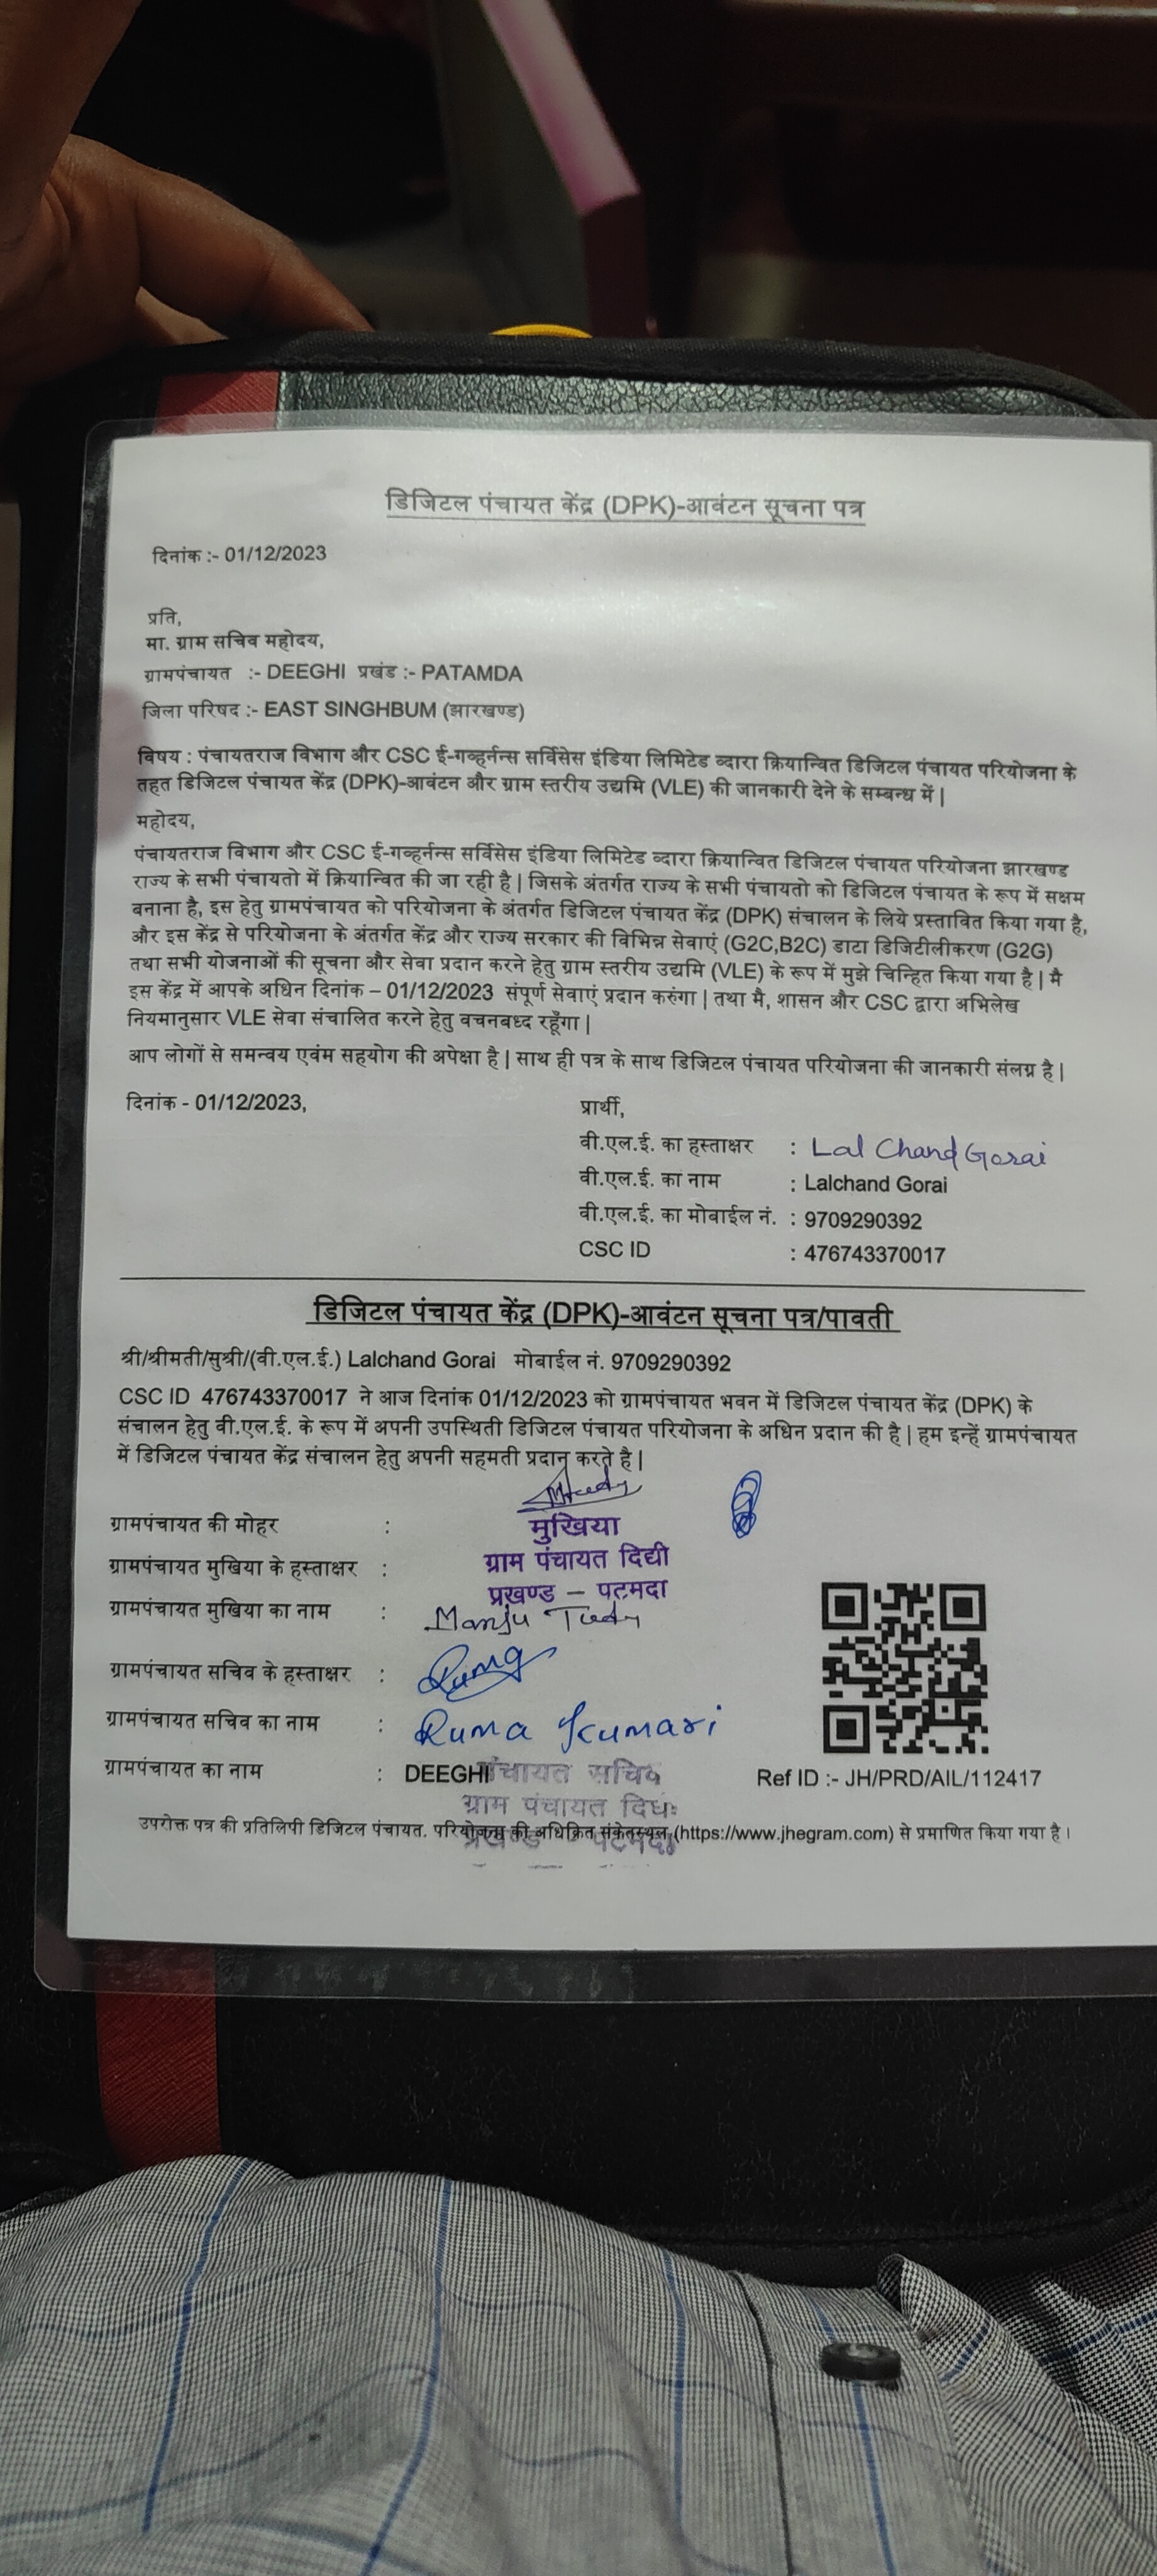 डिजिटल पंचायत केंद्र (DPK)-आवंटन सूचना पत्र
दिनांक :- 01/12/2023
प्रति,
मा. ग्राम सचिव महोदय,
ग्रामपंचायत :- DEEGHI प्रखंड :- PATAMDA
जिला परिषद :- EAST SINGHBUM (झारखण्ड)
विषय : पंचायतराज विभाग और CSC ई-गव्हर्नन्स सर्विसेस इंडिया लिमिटेड व्दारा क्रियान्वित डिजिटल पंचायत परियोजना के
तहत डिजिटल पंचायत केंद्र (DPK)-आवंटन और ग्राम स्तरीय उद्यमि (VLE) की जानकारी देने के सम्बन्ध में |
महोदय,
पंचायतराज विभाग और CSC ई-गव्हर्नन्स सर्विसेस इंडिया लिमिटेड व्दारा क्रियान्वित डिजिटल पंचायत परियोजना झारखण्ड
राज्य के सभी पंचायतो में क्रियान्वित की जा रही है | जिसके अंतर्गत राज्य के सभी पंचायतो को डिजिटल पंचायत के रूप में सक्षम
बनाना है, इस हेतु ग्रामपंचायत को परियोजना के अंतर्गत डिजिटल पंचायत केंद्र (DPK) संचालन के लिये प्रस्तावित किया गया है,
और इस केंद्र से परियोजना के अंतर्गत केंद्र और राज्य सरकार की विभिन्न सेवाएं (G2C,B2C) डाटा डिजिटीलीकरण (G2G)
तथा सभी योजनाओं की सूचना और सेवा प्रदान करने हेतु ग्राम स्तरीय उद्यमि (VLE) के रूप में मुझे चिन्हित किया गया है | मै
इस केंद्र में आपके अधिन दिनांक – 01/12/2023 संपूर्ण सेवाएं प्रदान करुंगा | तथा मै, शासन और CSC द्वारा अभिलेख
नियमानुसार VLE सेवा संचालित करने हेतु वचनबध्द रहूँगा |
आप लोगों से समन्वय एवंम सहयोग की अपेक्षा है | साथ ही पत्र के साथ डिजिटल पंचायत परियोजना की जानकारी संलग्न है |
दिनांक - 01/12/2023,
प्रार्थी,
वी.एल.ई. का हस्ताक्षर : Lal Chand Gorai
वी.एल.ई. का नाम : Lalchand Gorai
वी.एल.ई. का मोबाईल नं. : 9709290392
CSC ID : 476743370017
डिजिटल पंचायत केंद्र (DPK)-आवंटन सूचना पत्र/पावती
श्री/श्रीमती/सुश्री/(वी.एल.ई.) Lalchand Gorai मोबाईल नं. 9709290392
CSC ID 476743370017 ने आज दिनांक 01/12/2023 को ग्रामपंचायत भवन में डिजिटल पंचायत केंद्र (DPK) के
संचालन हेतु वी.एल.ई. के रूप में अपनी उपस्थिती डिजिटल पंचायत परियोजना के अधिन प्रदान की है | हम इन्हें ग्रामपंचायत
में डिजिटल पंचायत केंद्र संचालन हेतु अपनी सहमती प्रदान करते है |
ग्रामपंचायत की मोहर : मुखिया
ग्रामपंचायत मुखिया के हस्ताक्षर : ग्राम पंचायत दिघी
प्रखण्ड – पटमदा
ग्रामपंचायत मुखिया का नाम : Manju Tudy
ग्रामपंचायत सचिव के हस्ताक्षर :
ग्रामपंचायत सचिव का नाम : Ruma Kumari
ग्रामपंचायत का नाम : DEEGHI पंचायत सचिव
Ref ID :- JH/PRD/AIL/112417
ग्राम पंचायत
उपरोक्त पत्र की प्रतिलिपी डिजिटल पंचायत. परियोजना की अधिक्रित संकेतस्थल (https://www.jhegram.com) से प्रमाणित किया गया है |
पटमदा